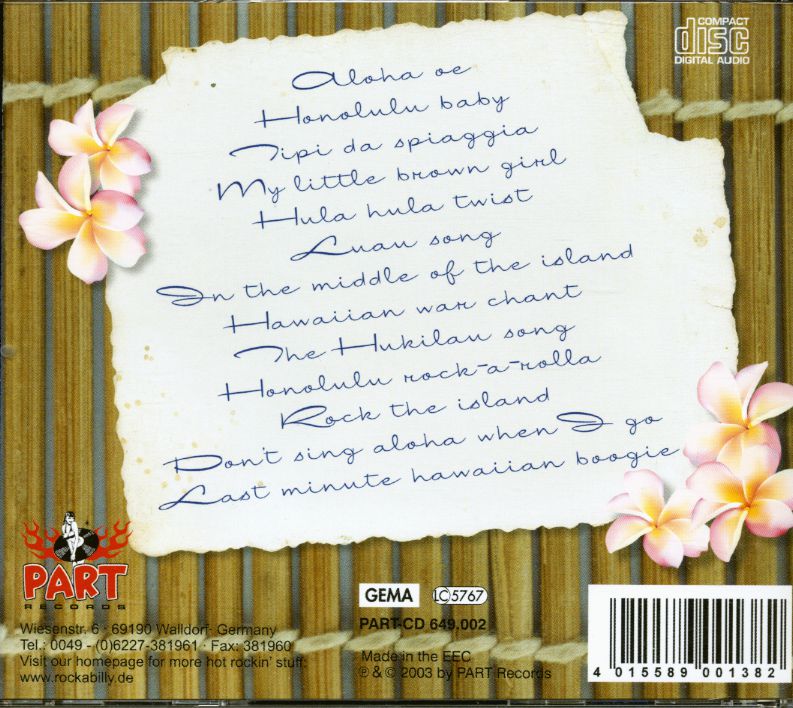 COMPACT
disc
DIGITAL AUDIO
Aloha oe
Honolulu baby
Tipi da spiaggia
My little brown girl
Hula hula twist
Luau song
In the middle of the island
Hawaiian war chant
The Hukilau song
Honolulu rock-a-rolla
Rock the island
Don't sing aloha when I go
Last minute hawaiian boogie
PART
RECORDS
Wiesenstr. 6 · 69190 Walldorf· Germany
Tel.: 0049 - (0)6227-381961 · Fax: 381960
Visit our homepage for more hot rockin' stuff:
www.rockabilly.de
GEMA LC 5767
PART-CD 649.002
Made in the EEC
℗ & © 2003 by PART Records
4 015589 001382